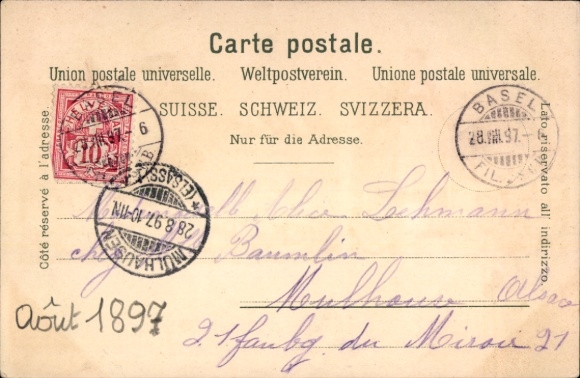 Carte postale.
Union postale universelle. Weltpostverein. Unione postale universale.
SUISSE. SCHWEIZ. SVIZZERA.
Nur für die Adresse.
Côté réservé à l'adresse.
Lato riservato all' indirizzo.
HELVETIA
10
6
BASEL
28.VIII.97.
MÜLHAUSEN
(ELSASS)
28.8.97.10-11N
Lehmann
chez Baumlin
Mulhouse Alsace
21 faubg. du Miroir 21
Août 1897